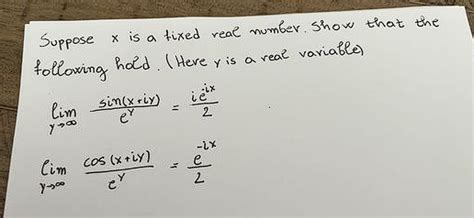 Suppose x is a fixed real number. Show that the
following hold. (Here y is a real variable)
lim y→∞ sin(x+iy)/e^y = ie^-ix/2
lim y→∞ cos(x+iy)/e^y = e^-ix/2